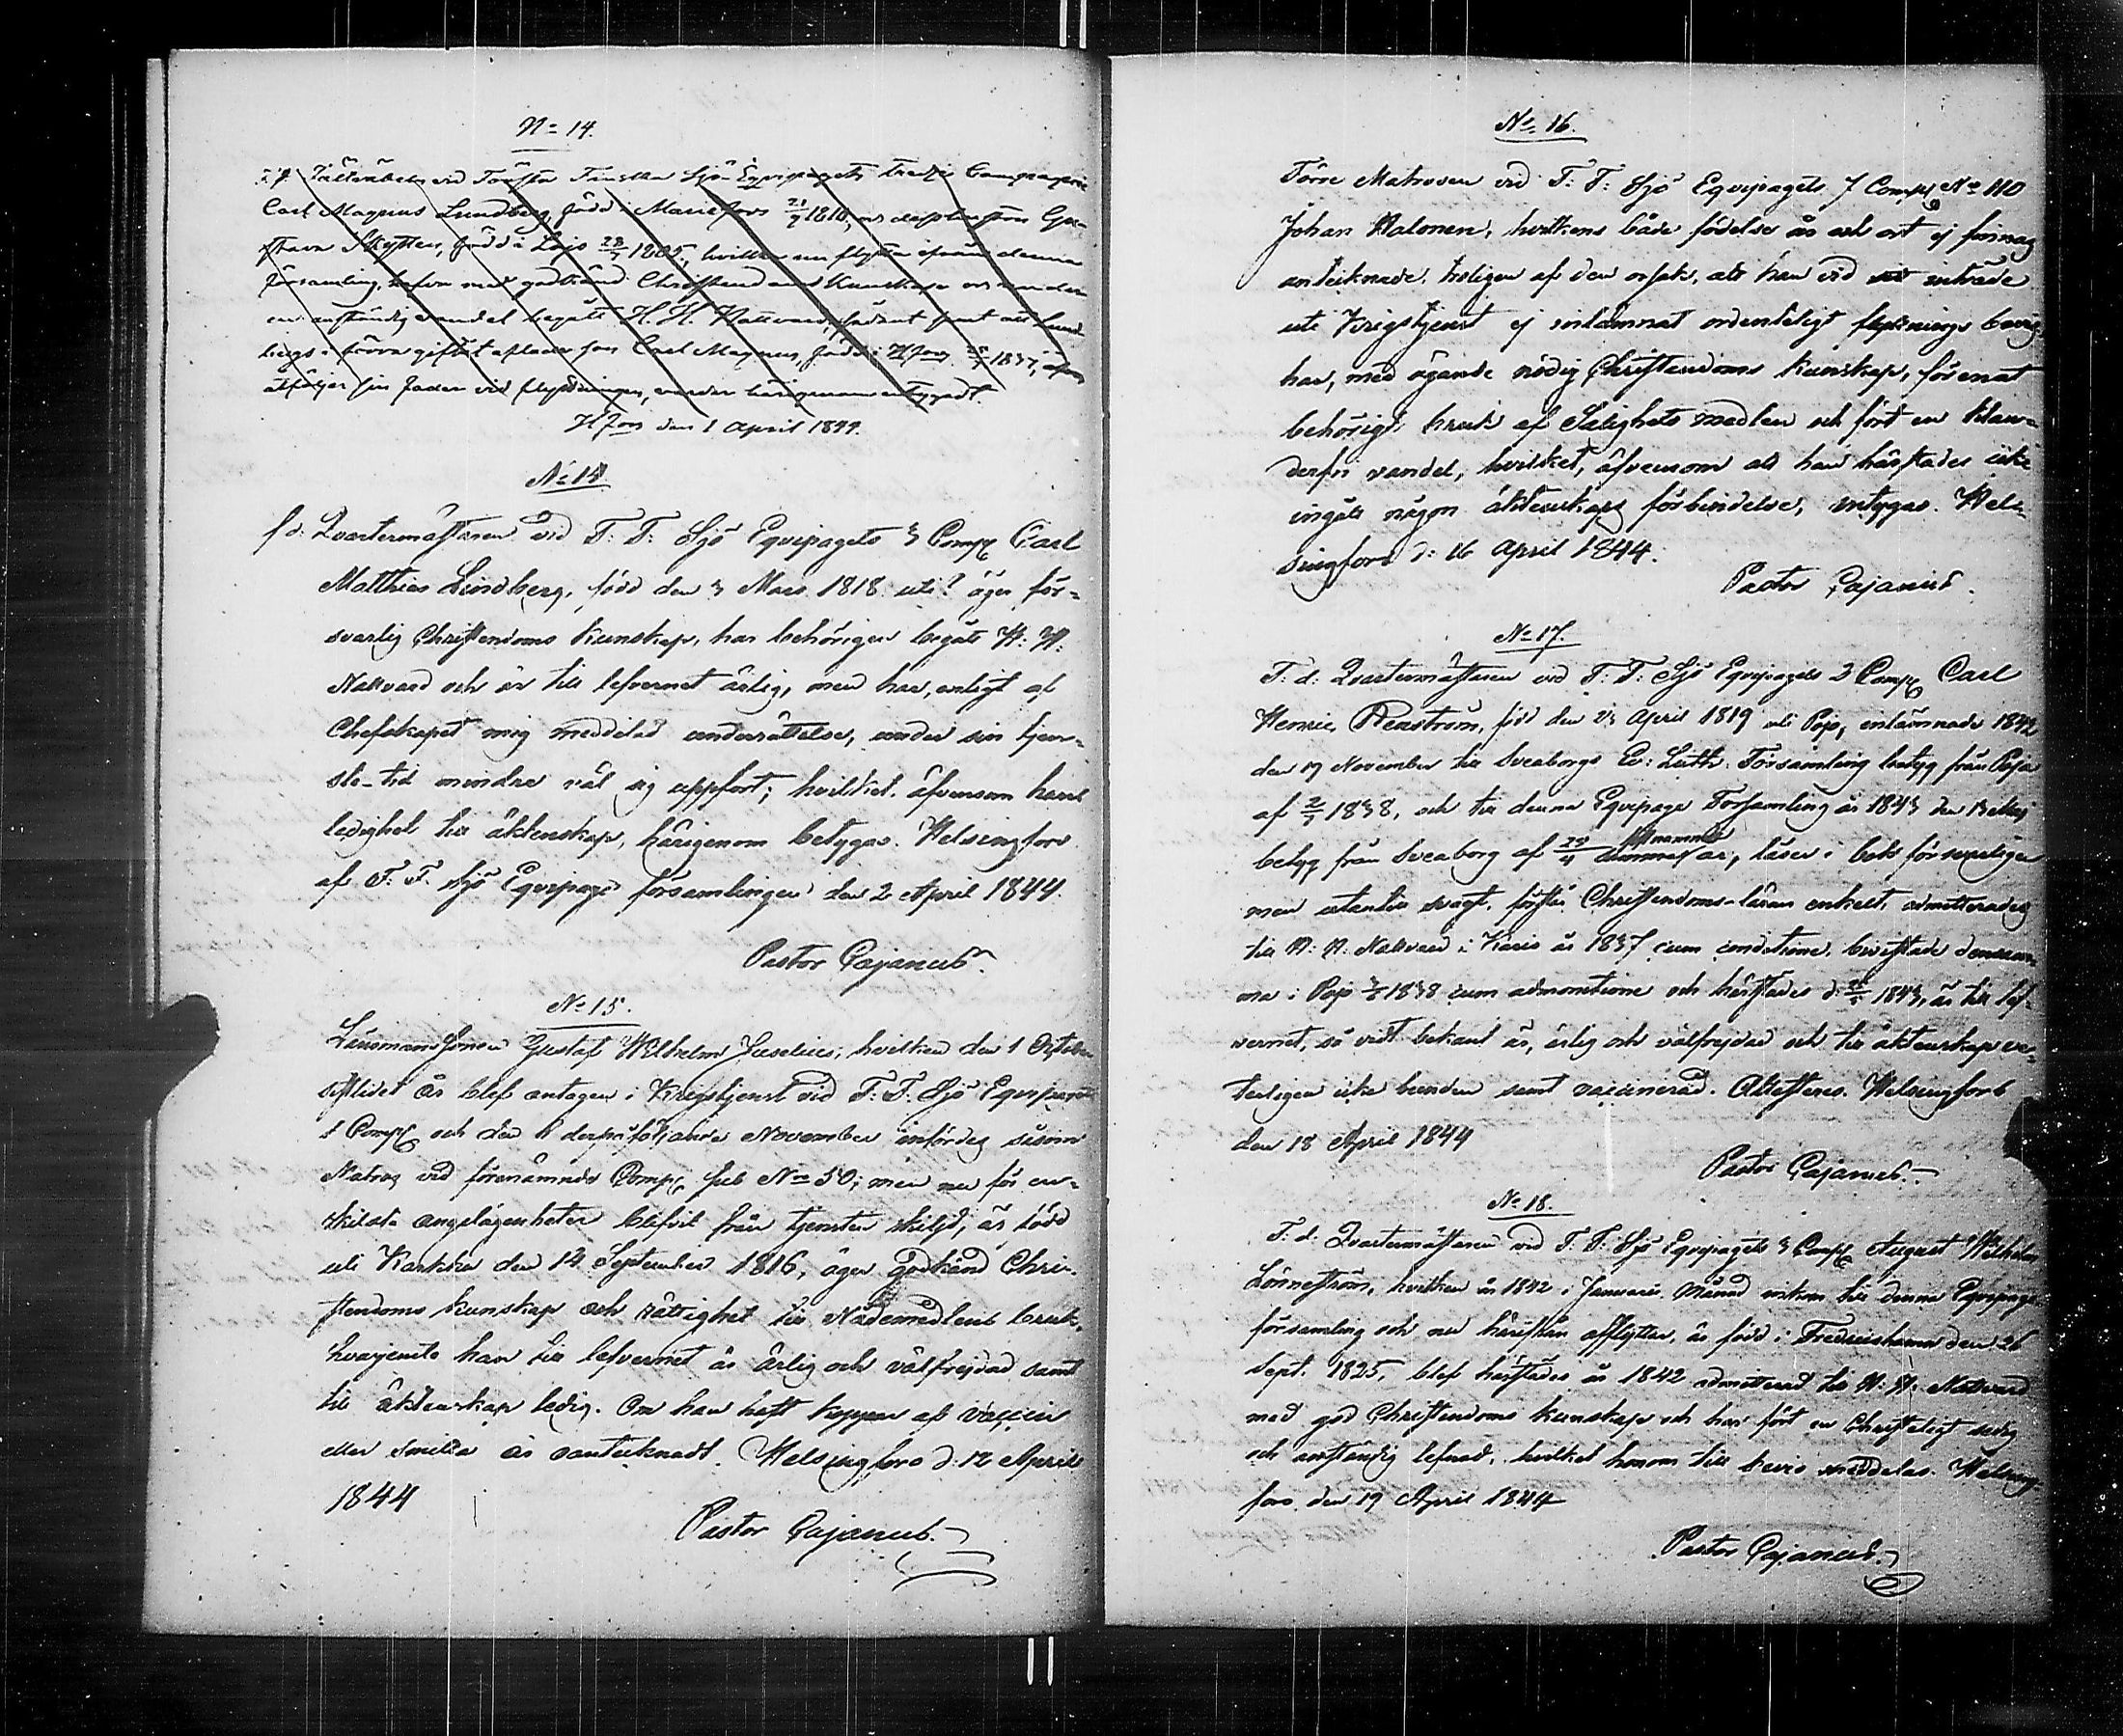 No 14.
f. d. Fältväbeln vid Första Finska Sjö-Eqvipagets tredje Compagnie
Carl Magnus Lundberg, född i Mariefors 21/9 1810, och dess hustru Gu-
stava Skytten, född i Lojo 23/3 1805, hvilka nu flytta ifrån denna
församling, hafva med godkänd Christendoms Kunskap och under
en anständig vandel begått H. H. Nattvard, sådant samt att Lund-
bergs i förra giftet aflade son Carl Magnus, född i Hfors 1837, äfven
åtföljer sin fader vid flyttningen, varder härigenom betygadt.
Hfors den 1 April 1844.
No 14
f. d. Qvartermästaren vid F: F: Sjö Eqvipagets 3 Comp Carl
Matthias Lindberg, född den 3 Mars 1818 uti? äger för-
svarlig Christendoms Kunskap, har behörigen begått H: H:
Nattvard och är till lefvernet ärlig, men har, enligt af
Chefskapet mig meddelad underrättelse, under sin tjen-
ste-tid mindre väl sig uppfört; hvilket, äfvensom hans
ledighet till äktenskap, härigenom betygas. Helsingfors
af F: F: Sjö Eqvipage församlingen den 2 April 1844.
Pastor Cajanus.
No 15.
Länsmans Sonen Gustaf Wilhelm Juselius, hvilken den 1 October
sistlidet år blef antagen i Krigstjenst vid F: F: Sjö Eqvipagets
1 Comp och den 11 derpåföljande November infördes såsom
Matros vid förenämnde Comp sub No 50, men nu för en-
skilda angelägenheter blifvit från tjensten skiljd, är född
uti Karkku den 14 September 1816, äger godkänd Chri-
stendoms kunskap och rättighet till Nådemedlens bruk,
hvarjemte han till lefvernet är ärlig och välfrejdad samt
till äktenskap ledig. Om han haft koppor af vaccin
eller smitta är oantecknadt. Helsingfors d: 12 April
1844
Pastor Cajanus.
No 16.
Förre Matrosen vid F: F: Sjö Eqvipagets 7 Comp No 110
Johan Halonen, hvilkens både födelse år och ort ej finnas
antecknade, troligen af den orsak, att han vid inträde
uti Krigstjenst ej inlämnat ordentligt flyttnings betyg
har, med ägande nödig Christendoms kunskap, förenat
behörigt bruk af Salighets medlen och fört en klan-
derfri vandel, hvilket, äfvensom att han härstädes icke
ingått någon äktenskaps förbindelse, intygas. Hel-
singfors d: 16 April 1844.
Pastor Cajanus.
No 17.
F: d: Qvartermästaren vid F: F: Sjö Eqvipagets 3 Comp Carl
Henric Renström, född den 23 April 1819 uti Pojo, inlämnade 1842
den 17 November till Sveaborgs Ev: Luth: Församling betyg från Pojo
af 1838, och till denna Eqvipage Församling år 1843 den 13 Maj
betyg från Sveaborg af 29/4 sistnämnde år, läser i bok försvarligen
men utantill svagt, förstår Christendoms-läran enkelt, admitterades
till H: H: Nattvard i Karis år 1837 cum conditione, bevistade densam-
ma i Pojo 1838 cum admonitione och härstädes d: 1843, är till lef-
vernet, så vidt bekant är, ärlig och välfrejdad och till äktenskap ve-
terligen icke bunden samt vaccinerad. Attesteras. Helsingfors
den 18 April 1844
Pastor Cajanus.
No 18.
F: d: Qvartermästaren vid F: F: Sjö Eqvipagets 3 Comp August Wilhelm
Lönneström, hvilken år 1842 i Januarii Månad inkom till denna Eqvipage
församling och nu härifrån afflyttar, är född i Fredrikshamn den 26
Sept. 1825, blef härstädes år 1842 admitterad till H: H: Nattvard
med god Christendoms kunskap och har fört en Christeligt sedig
och anständig lefnad, hvilket honom till bevis meddelas. Helsing-
fors den 19 April 1844
Pastor Cajanus.